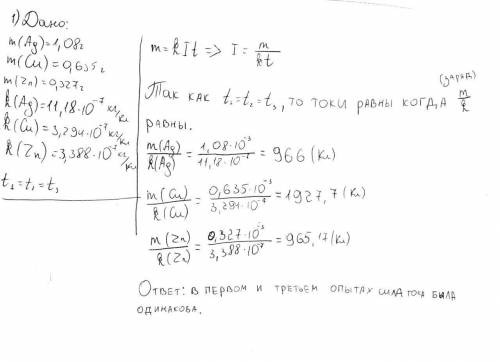 1) Дано:
m(Ag)=1,08г
m(Cu)=0,635г
m(Zn)=0,327г
k(Ag)=11,18·10⁻⁷ кг/Кл
k(Cu)=3,294·10⁻⁷ кг/Кл
k(Zn)=3,388·10⁻⁷ кг/Кл
t₂=t₁=t₃
m=kIt => I = m/kt
(заряд)
Так как t₁=t₂=t₃, то токи равны когда m/k
равны.
m(Ag)/k(Ag) = 1,08·10⁻³/11,18·10⁻⁷ = 966 (Кл)
m(Cu)/k(Cu) = 0,635·10⁻³/3,294·10⁻⁷ = 1927,7 (Кл)
m(Zn)/k(Zn) = 0,327·10⁻³/3,388·10⁻⁷ = 965,17 (Кл)
Ответ: в первом и третьем опытах сила тока была
одинакова.